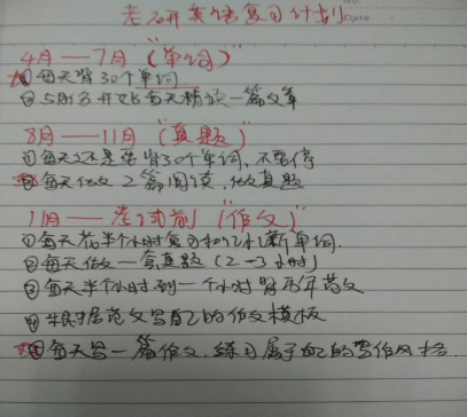 考研英语复习计划
4月——7月 (单词)
①每天背30个单词
②5月多开始每天精读一篇文章
8月——11月 "(真题)"
①每天还是要背30个单词,不要停
②每天做 2 篇阅读,做真题
11月——考试前 "作文)"
①每天花半个小时复习和记新单词.
②每天做一套真题 (2-3小时)
③每天半个小时到一个小时背历年范文
④根据范文写自己的作文模板
⑤每天写一篇作文,练习属于自己的写作风格.